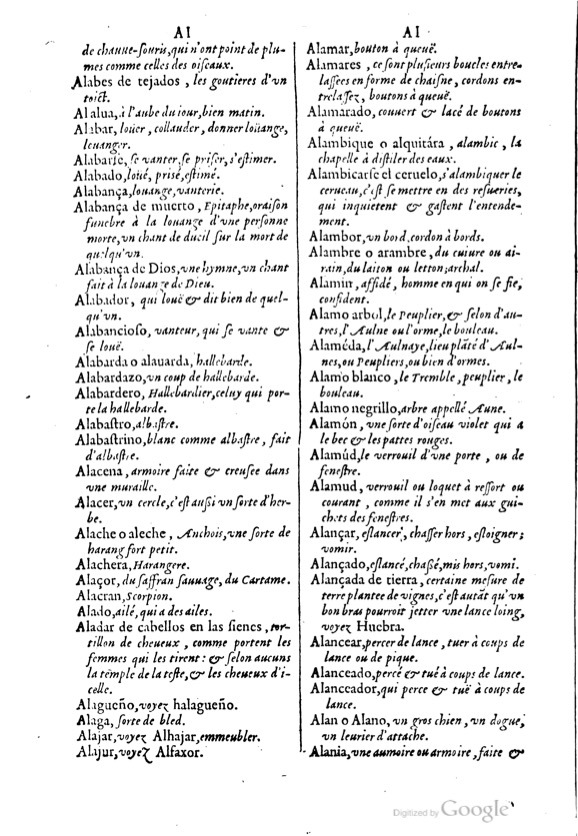 Al
de chauue-souris, qui n'ont point de plu-
mes comme celles des oiseaux.
Alabes de tejados, les goutieres d'vn
toict.
Al alua, à l'aube du iour, bien matin.
Alabar, loüer, collauder, donner loüange,
loüanger.
Alabarse, se vanter, se priser, s'estimer.
Alabado, loüé, prisé, estimé.
Alabança, loüange, vanterie.
Alabança de muerto, Epitaphe, oraison
funebre à la loüange d'vne personne
morte, vn chant de dueil sur la mort de
quelqu'vn.
Alabança de Dios, vne hymne, vn chant
fait à la loüange de Dieu.
Alabador, qui loüe & dit bien de quel-
qu'vn.
Alabancioso, vanteur, qui se vante &
se loüe.
Alabarda o alauarda, hallebarde.
Alabardazo, vn coup de hallebarde.
Alabardero, Hallebardier, celuy qui por-
te la hallebarde.
Alabastro, albastre.
Alabastrino, blanc comme albastre, fait
d'albastre.
Alacena, armoire faite & creusee dans
vne muraille.
Alacer, vn cercle, c'est aussi vn sorte d'her-
be.
Alache o aleche, Anchois, vne sorte de
harang fort petit.
Alachera, Harangere.
Alaçor, du saffran sauuage, du Cartame.
Alacran, Scorpion.
Alado, ailé, qui a des ailes.
Aladar de cabellos en las sienes, tor-
tillon de cheueux, comme portent les
femmes qui les tirent: & selon aucuns
la temple de la teste, & les cheueux d'i-
celle.
Alagueño, voyez halagueño.
Alaga, sorte de bled.
Alajar, voyez Alhajar, emmeubler.
Alajur, voyez Alfaxor.
Al
Alamar, bouton à queuë.
Alamares, ce sont plusieurs boucles entre-
lassees en forme de chaisne, cordons en-
trelassez, boutons à queuë.
Alamarado, couuert & lacé de boutons
à queuë.
Alambique o alquitára, alambic, la
chapelle à distiler des eaux.
Alambicarse el ceruelo, s'alambiquer le
cerueau, c'est se mettre en des resueries,
qui inquietent & gastent l'entende-
ment.
Alambor, vn bord, cordon à bords.
Alambre o arambre, du cuiure ou ai-
rain, du laiton ou letton; archal.
Alamin, affidé, homme en qui on se fie,
confident.
Alamo arbol, le Peuplier, & selon d'au-
tres, l'Aulne ou l'orme, le bouleau.
Alaméda, l'Aulnaye, lieu plāté d'Aul-
nes, ou Peupliers, ou bien d'ormes.
Alamo blanco, le Tremble, peuplier, le
bouleau.
Alamo negrillo, arbre appellé Aune.
Alamón, vne sorte d'oiseau violet qui a
le bec & les pattes rouges.
Alamúd, le verrouil d'vne porte, ou de
fenestre.
Alamud, verrouil ou loquet à ressort ou
courant, comme il s'en met aux gui-
chets des fenestres.
Alançar, eslancer, chasser hors, esloigner;
vomir.
Alançado, eslancé, chaßé, mis hors, vomi.
Alançada de tierra, certaine mesure de
terre plantee de vignes, c'est autāt qu'vn
bon bras pourroit jetter vne lance loing,
voyez Huebra.
Alancear, percer de lance, tuer à coups de
lance ou de pique.
Alanceado, percé & tué à coups de lance.
Alanceador, qui perce & tuë à coups de
lance.
Alan o Alano, vn gros chien, vn dogue,
vn leurier d'attache.
Alania, vne aumoire ou armoire, faite &
Digitized by Google